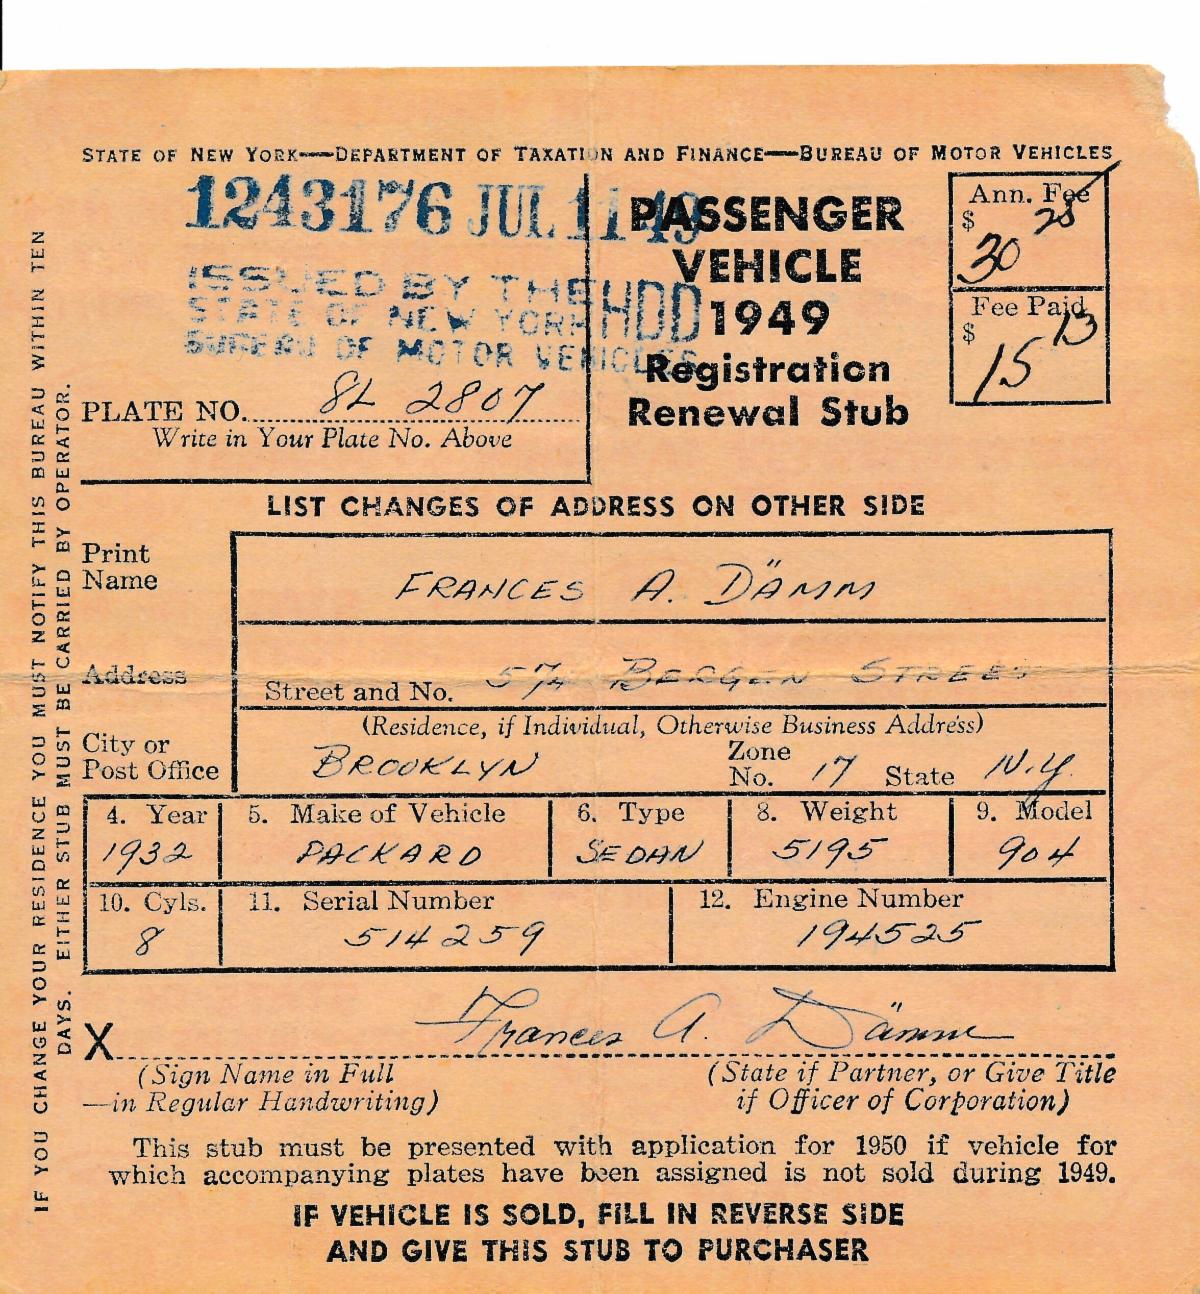 STATE OF NEW YORK—DEPARTMENT OF TAXATION AND FINANCE—BUREAU OF MOTOR VEHICLES
1243176 JUL 11 49
ISSUED BY THE
STATE OF NEW YORK HDD
BUREAU OF MOTOR VEHICLES
PLATE NO. 8L 2807
Write in Your Plate No. Above
PASSENGER
VEHICLE
1949
Registration
Renewal Stub
Ann. Fee
$ 30 25
Fee Paid
$ 15 13
LIST CHANGES OF ADDRESS ON OTHER SIDE
Print
Name
FRANCES A. DÄMM
Address
Street and No. 574 BERGEN STREET
(Residence, if Individual, Otherwise Business Address)
City or
Post Office
BROOKLYN
Zone
No. 17 State N.Y.
4. Year 5. Make of Vehicle 6. Type 8. Weight 9. Model
1932 PACKARD SEDAN 5195 904
10. Cyls. 11. Serial Number 12. Engine Number
8 514259 194525
X Frances A. Dämm
(Sign Name in Full
—in Regular Handwriting)
(State if Partner, or Give Title
if Officer of Corporation)
This stub must be presented with application for 1950 if vehicle for
which accompanying plates have been assigned is not sold during 1949.
IF VEHICLE IS SOLD, FILL IN REVERSE SIDE
AND GIVE THIS STUB TO PURCHASER
IF YOU CHANGE YOUR RESIDENCE YOU MUST NOTIFY THIS BUREAU WITHIN TEN
DAYS. EITHER STUB MUST BE CARRIED BY OPERATOR.